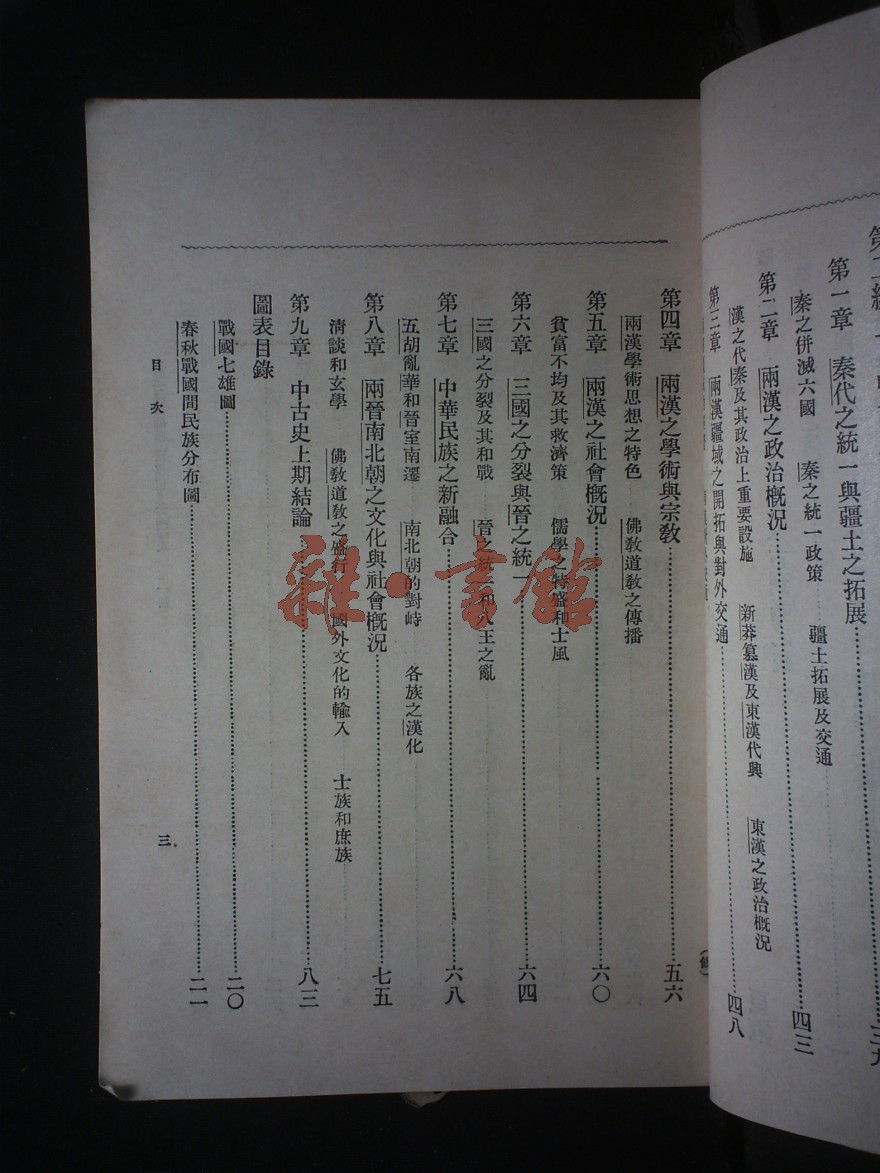 第一章 秦代之統一與疆土之拓展……三九
秦之併滅六國 秦之統一政策 疆土拓展及交通
第二章 兩漢之政治概況……四三
漢之代秦及其政治上重要設施 新莽篡漢及東漢代興 東漢之政治概況
第三章 兩漢疆域之開拓與對外交通……四八
第四章 兩漢之學術與宗教……五六
兩漢學術思想之特色 佛教道教之傳播
第五章 兩漢之社會概況……六〇
貧富不均及其救濟策 儒學之特盛和士風
第六章 三國之分裂與晉之統一……六四
三國之分裂及其和戰 晉之統一和八王之亂
第七章 中華民族之新融合……六八
五胡亂華和晉室南遷 南北朝的對峙 各族之漢化
第八章 兩晉南北朝之文化與社會概況……七五
清談和玄學 佛教道教之盛行 國外文化的輸入 士族和庶族
第九章 中古史上期結論……八三
圖表目錄
戰國七雄圖……二〇
春秋戰國間民族分布圖……二一
目次
三
雜·書館